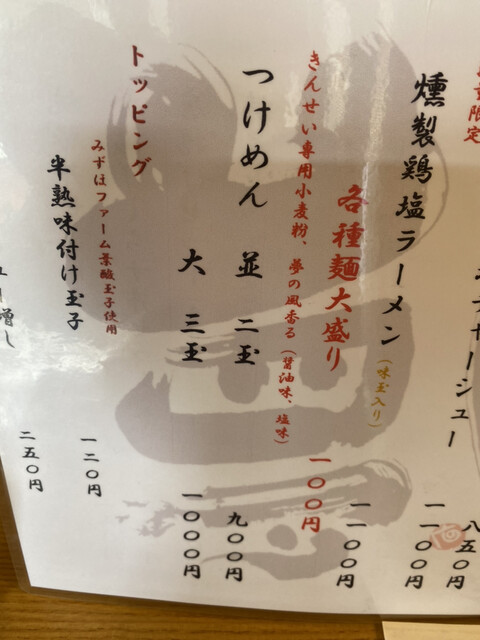 八五〇円
量限定
チャーシュー 一一〇〇円
燻製鶏塩ラーメン（味玉入り） 一一〇〇円
各種麺大盛り 一〇〇円
きんせい専用小麦粉、夢の風香る（醤油味、塩味）
つけめん 並 二玉 九〇〇円
大 三玉 一〇〇〇円
トッピング
みずほファーム葉酸玉子使用
半熟味付け玉子 一二〇円
ュー増し 二五〇円